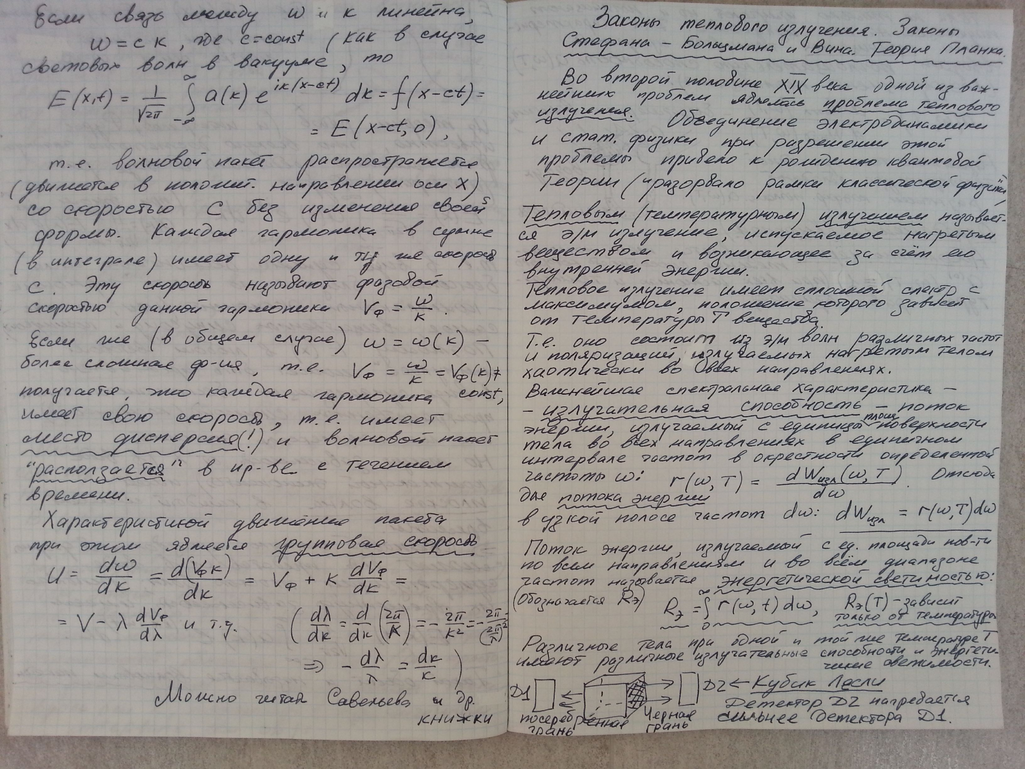 Если связь между ω и k линейна,
ω = c k, где c = const (как в случае
световых волн в вакууме), то
E(x,t) = 1/√2π ∫_{-∞}^{∞} a(k) e^{ik(x-ct)} dk = f(x-ct) =
= E(x-ct, 0),
т.е. волновой пакет распространяется
(движется в полож. направлении оси X)
со скоростью C без изменения своей
формы. Каждая гармоника в сумме
(в интеграле) имеет одну и ту же скорость
c. Эту скорость называют фазовой
скоростью данной гармоники V_ф = ω/k.
Если же (в общем случае) ω = ω(k) –
более сложная ф-ия, т.е. V_ф = ω/k = V_ф(k) ≠
получается, что каждая гармоника const,
имеет свою скорость, т.е. имеет
место дисперсия(!) и волновой пакет
"расползается" в пр-ве с течением
времени.
Характеристикой движения пакета
при этом является групповая скорость
U = dω/dk = d(V_ф k)/dk = V_ф + k dV_ф/dk =
= V - λ dV_ф/dλ и т.д. (dλ/dk = d/dk (2π/k) = -2π/k² = -2π/(2π/λ)²
⇒ - dλ/λ = dk/k)
Можно читать Савельева и др.
книжки
Законы теплового излучения. Законы
Стефана – Больцмана и Вина. Теория Планка.
Во второй половине XIX века одной из важ-
нейших проблем являлась проблема теплового
излучения. Объединение электродинамики
и стат. физики при разрешении этой
проблемы привело к рождению квантовой
Теории (и разорвало рамки классической физики)
Тепловым (температурным) излучением называет-
ся э/м излучение, испускаемое нагретым
веществом и возникающее за счёт его
внутренней энергии.
Тепловое излучение имеет сплошной спектр с
максимумом, положение которого зависит
от температуры T вещества.
Т.е. оно состоит из э/м волн различных частот
и поляризаций, излучаемых нагретым телом
хаотически во всех направлениях.
Важнейшая спектральная характеристика –
- излучательная способность – поток
энергии, излучаемый с единицы площ. поверхности
тела во всех направлениях в единичном
интервале частот в окрестности определённой
частоты ω: r(ω,T) = dW_изл(ω,T)/dω. Отсюда
для потока энергии
в узкой полосе частот dω: dW_изл = r(ω,T)dω
Поток энергии, излучаемой с ед. площади пов-ти
по всем направлениям и во всём диапазоне
частот называется энергетической светимостью:
(Обозначается R_э) R_э = ∫_0^∞ r(ω,t) dω, R_э(T) – зависит
только от температуры
Различные тела при одной и той же температуре T
имеют различные излучательные способности и энергети-
ческие светимости.
D1 D2 ← Кубик Лесли
посеребренная грань Черная грань
Детектор D2 нагревается
сильнее детектора D1.